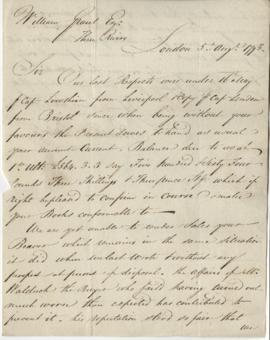 William Grant Esqr.
Three Rivers
London 5th Augt. 1793
Sir
Our last Respects were under 16 May
p Capt. Lowthian from Liverpool Copy p Capt. London
from Bristol since when being without your
favours the Present serves to hand as usual
your account Current. Balance due to us at
1st Ulto. £564.3.3 Say Five Hundred Sixty Four
Pounds Three Shillings & Threepence Stg. which if
right be pleased to confirm in course & make
your Books conformable to
We are yet unable to render Sales your
Beaver which remains in the same situation
it did when we last wrote & without any
prospect at present of disposal. The affairs of Mr.
the who fail'd having turned out
much worse than expected has contributed to
prevent it. his reputation stood so fair that
we